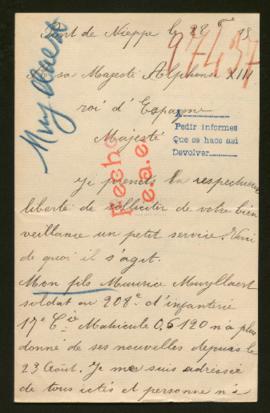 Pont de Nieppe le 28
97437
Sa Majesté Alphonse XIII
roi d'Espagne
Pedir informes
Que se hace asi
Devolver
Majesté
Fecho
Je prends la respectueuse
liberté de solliciter de votre bien
veillance un petit service. Voici
de quoi il s'agit.
Mon fils Maurice
soldat au 208e d'infanterie
17e Cie Matricule 0,6120 n'a plus
donné de ses nouvelles depuis le
23 Août. Je me suis adressée
de tous côtés et personne n'a